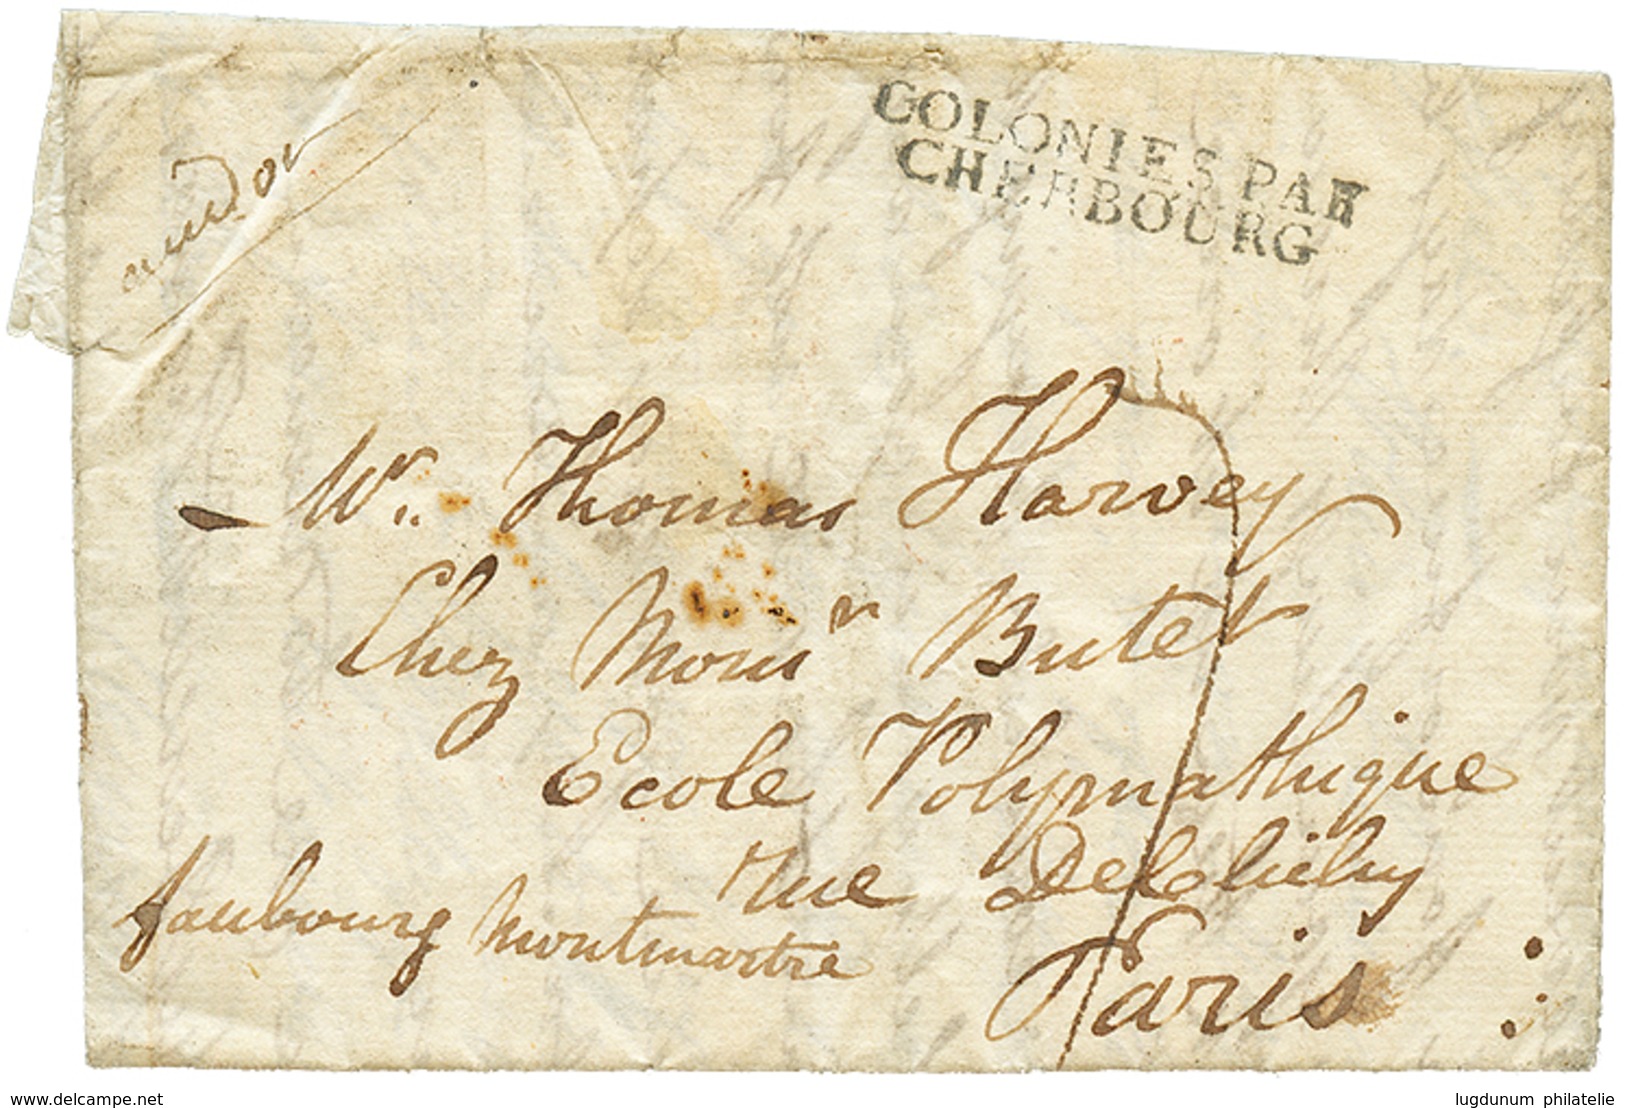 COLONIES PAR
CHERBOURG
Mr. Thomas Harvey
Chez Monsr Butet
Ecole Polymathique
Rue De Clichy
faubourg Montmartre
Paris
www.delcampe.net
lugdunum philatelie